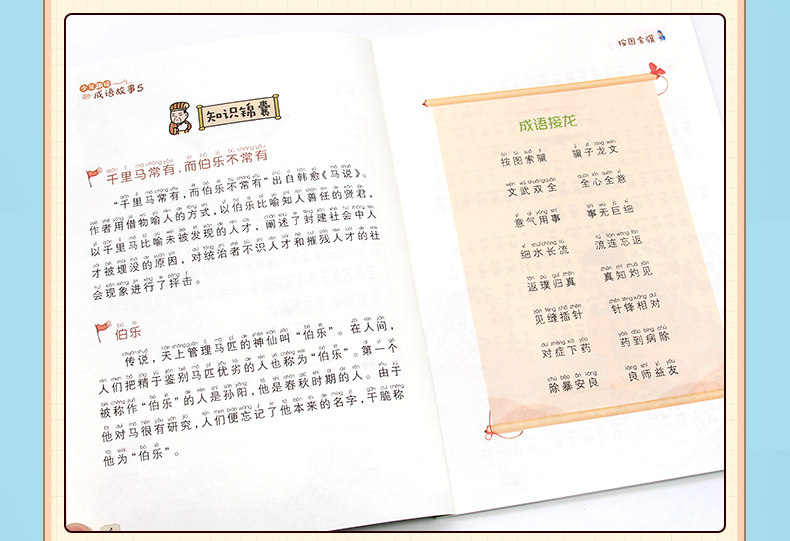 少年趣读
成语故事5
知识锦囊
千里马常有,而伯乐不常有
“千里马常有,而伯乐不常有”出自韩愈《马说》。
作者用借物喻人的方式,以伯乐比喻知人善任的贤君,
以千里马比喻未被发现的人才,阐述了封建社会中人
才被埋没的原因,对统治者不识人才和摧残人才的社
会现象进行了抨击。
伯乐
传说,天上管理马匹的神仙叫“伯乐”。在人间,
人们把精于鉴别马匹优劣的人也称为“伯乐”。第一个
被称作“伯乐”的人是孙阳,他是春秋时期的人。由于
他对马很有研究,人们便忘记了他本来的名字,干脆称
他为“伯乐”。
按图索骥
成语接龙
按图索骥 骥子龙文
文武双全 全心全意
意气用事 事无巨细
细水长流 流连忘返
返璞归真 真知灼见
见缝插针 针锋相对
对症下药 药到病除
除暴安良 良师益友